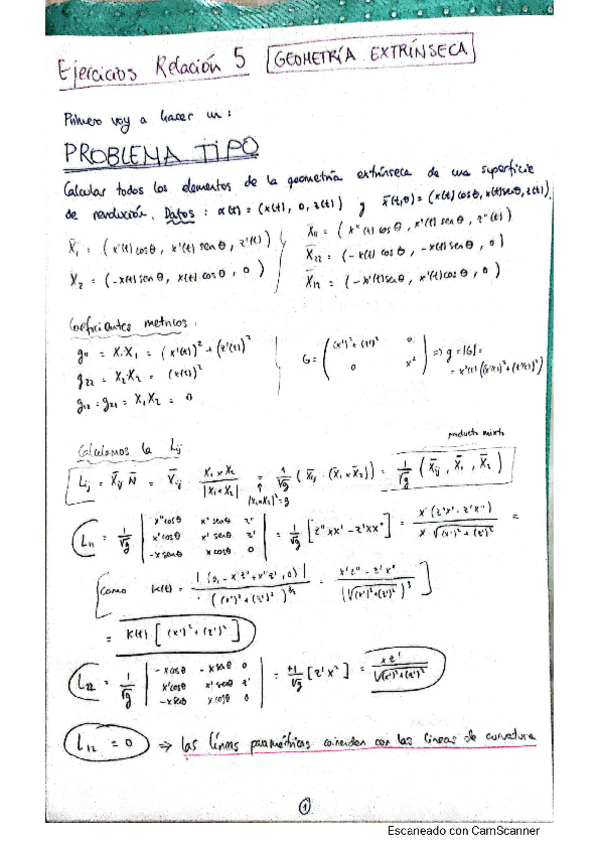 Ejercicios Relación 5 GEOMETRÍA EXTRÍNSECA
Primero voy a hacer un:
PROBLEMA TIPO
Calcular todos los elementos de la geometría extrínseca de una superficie
de revolución. Datos: α(t) = (x(t), 0, z(t)) y X̄(t,θ) = (x(t)cosθ, x(t)senθ, z(t)).
X̄₁ = (x'(t)cosθ, x'(t)senθ, z'(t))
X̄₂ = (-x(t)senθ, x(t)cosθ, 0)
X̄₁₁ = (x''(t)cosθ, x''(t)senθ, z''(t))
X̄₂₂ = (-x(t)cosθ, -x(t)senθ, 0)
X̄₁₂ = (-x'(t)senθ, x'(t)cosθ, 0)
Coeficientes métricos.
g₁₁ = X₁·X₁ = (x'(t))² + (z'(t))²
g₂₂ = X₂·X₂ = (x(t))²
g₁₂ = g₂₁ = X₁X₂ = 0
G = ( (x')²+(z')² 0
0 x² ) ⇒ g = |G| =
= x²(t)((x'(t))²+(z'(t))²)
Calculamos la Lij
producto mixto
Lij = X̄ij N̄ = X̄ij · X₁×X₂ / |X₁×X₂| = 1/√g (X̄ij · (X̄₁×X̄₂)) = 1/√g (X̄ij, X̄₁, X̄₂)
|X₁×X₂|² = g
L₁₁ = 1/√g | x''cosθ x''senθ z'' | = 1/√g [z''xx' - z'xx''] = x(z''x' - z'x'') / x·√((x')²+(z')²) =
| x'cosθ x'senθ z' |
| -xsenθ xcosθ 0 |
como K(t) = |(0, -x'z''+x''z', 0)| / ((x')²+(z')²)^3/2 = x'z'' - z'x'' / (√((x')²+(z')²))³
= K(t)·[(x')²+(z')²]
L₂₂ = 1/√g | -xcosθ -xsenθ 0 | = +1/√g [z'x²] = xz' / √((x')²+(z')²)
| x'cosθ x'senθ z' |
| -xsenθ xcosθ 0 |
L₁₂ = 0 ⇒ las líneas paramétricas coinciden con las líneas de curvatura
1
Escaneado con CamScanner